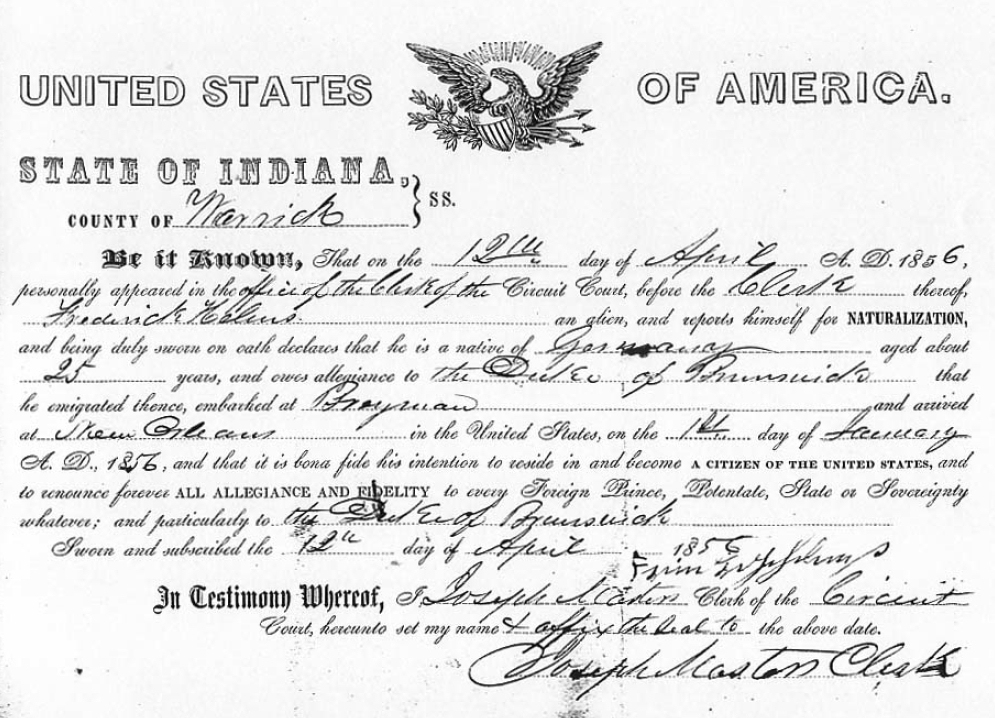 UNITED STATES OF AMERICA.
STATE OF INDIANA,
COUNTY OF Warrick } SS.
Be it Known, That on the 12th day of April A. D. 1856,
personally appeared in the office of the Clerk of the Circuit Court, before the Clerk thereof,
Frederick Helms an alien, and reports himself for NATURALIZATION,
and being duly sworn on oath declares that he is a native of Germany aged about
25 years, and owes allegiance to the Duke of Brunswick that
he emigrated thence, embarked at and arrived
at New Orleans in the United States, on the 1st day of January
A. D., 1856, and that it is bona fide his intention to reside in and become A CITIZEN OF THE UNITED STATES, and
to renounce forever ALL ALLEGIANCE AND FIDELITY to every Foreign Prince, Potentate, State or Sovereignty
whatever; and particularly to the Duke of Brunswick
Sworn and subscribed the 12th day of April 1856
In Testimony Whereof, I Joseph Masters Clerk of the Circuit
Court, hereunto set my name & affix the seal to the above date.
Joseph Masters Clerk